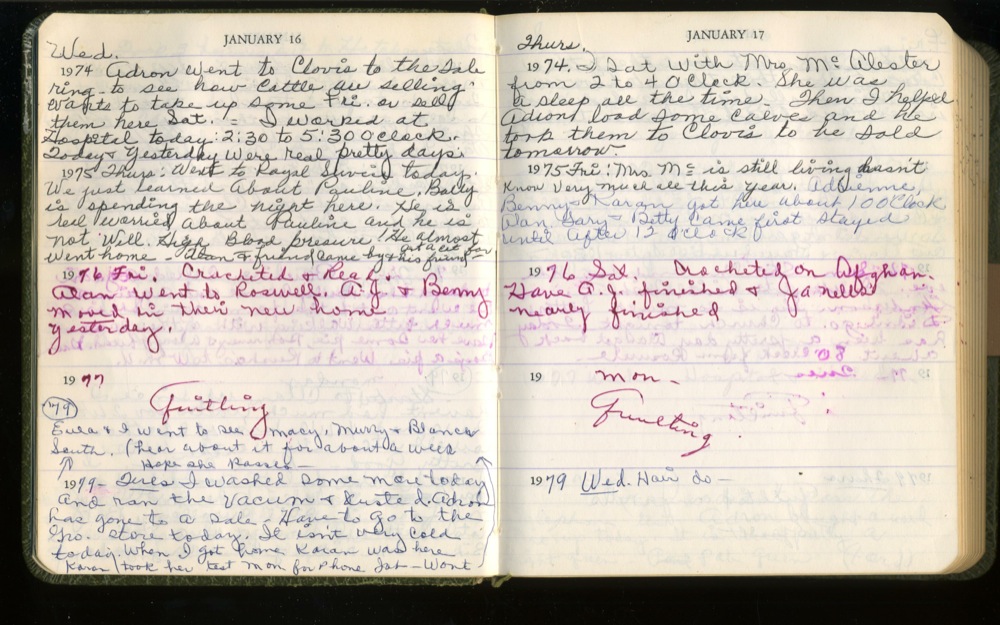 JANUARY 16
Wed.
1974 Adron Went to Clovis to the Sale
ring - to see how Cattle are selling.
Wants to take up some Fri. or sell
them here Sat. - I worked at
Hospital today: 2:30 to 5:30 Oclock.
Today & Yesterday Were real pretty days.
1975 Thurs. Went to Royal Service today.
We just learned About Pauline. Bolly
is spending the night here. He is
real worried About Pauline and he is
not Well. High Blood presure. He almost
Went home - Alan & friend came by & his friend
1976 Fri. Crocheted & Read.
Alan went to Roswell. A.J. & Benny
moved in their new home
yesterday.
1977
Quilting
'79
Eula & I went to see Macy, Murry & Blanca
South. (hear about it for about a week
Hope she Passes -
1979 - Tues I washed some more today
And ran the Vacum & dusted. Adron
has gone to a sale - Have to go to the
Gro. store today. It isn't very cold
today. When I got home Karan was here
Karan took her test Mon for Phone Job - Wont
JANUARY 17
Thurs.
1974. I Sat With Mrs Mc Alester
from 2 to 4 O'Clock. She was
a sleep all the time. Then I helped
Adron load some Calves and he
took them to Clovis to be sold
tomorrow.
1975 Fri: Mrs Mc is still living doesn't
Know very much else this year. Adrienne,
Benny & Karan got here about 10 O'Clock
Alan, Gary & Betty came first stayed
until after 12 O'clock
1976 Sat. Crocheted on Afghan.
Have A.J. finished & Janells
nearly finished
19 Mon -
Quilting
1979 Wed. Hair do -